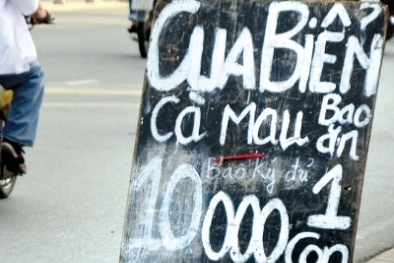 Cua Biển
Cà Mau Bao ăn
Bao Ký đủ
10 000 1 Con